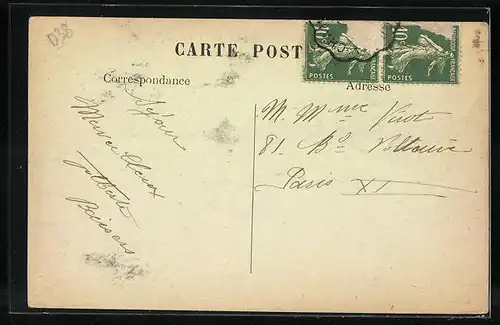 D38
CARTE POST
Correspondance
Adresse
10
POSTES
10
POSTES
REPUBLIQUE FRANÇAISE
Séjour
Merveilleux
Baisers
M. Mme Virot
81. Bd Voltaire
Paris XI